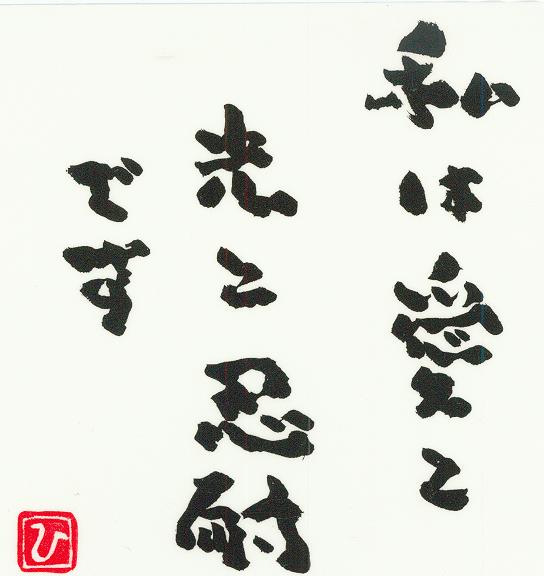 私は愛と
光と忍耐
です
ひ